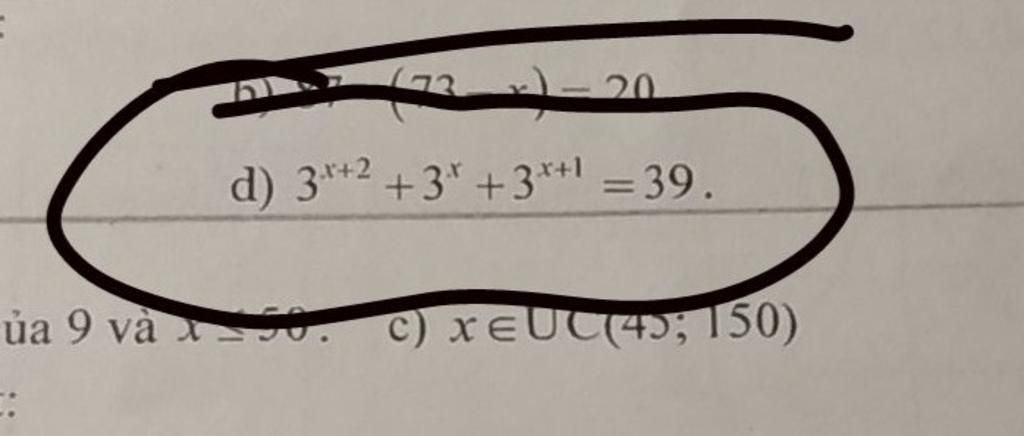 b) 87 – (73 – x) = 20
d) 3^{x+2} + 3^x + 3^{x+1} = 39.
ủa 9 và x ≤ 50. c) x ∈ ƯC(45; 150)